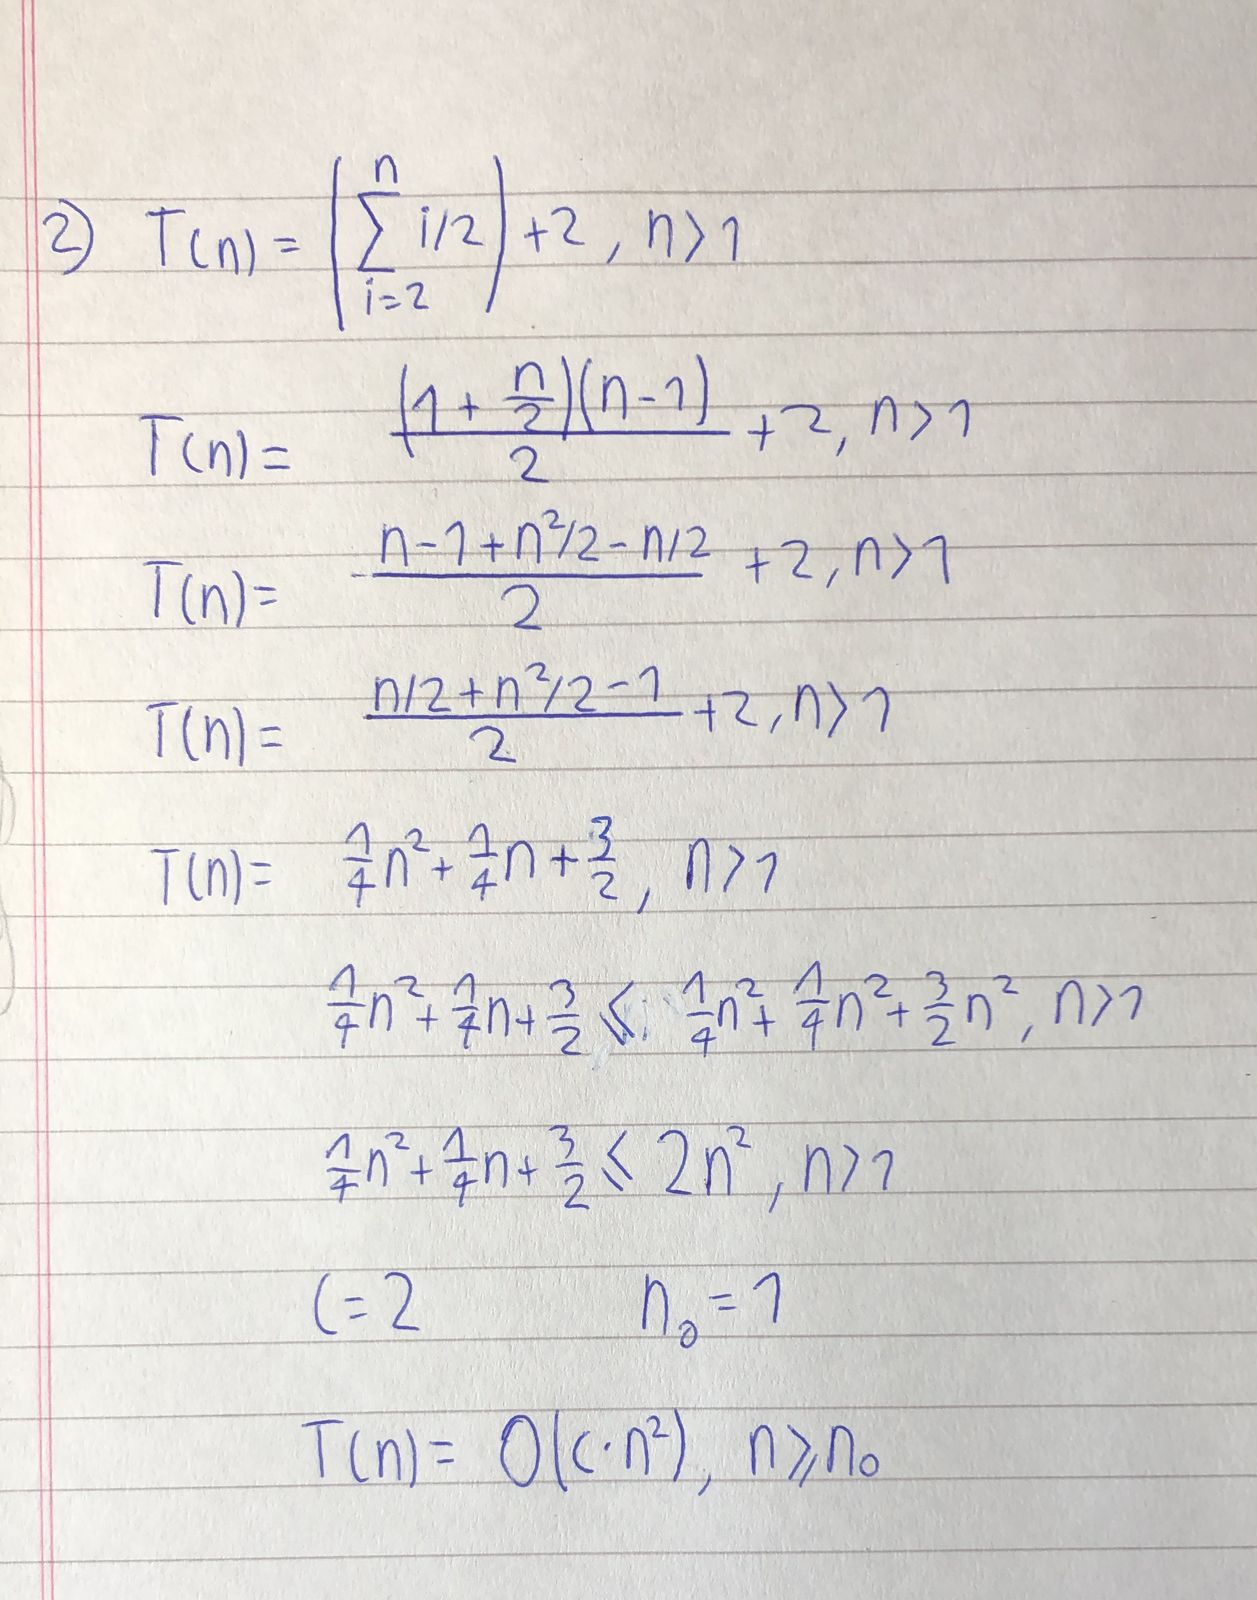 2) T(n) = (∑_{i=2}^{n} i/2) + 2, n>1
T(n) = ((1 + n/2)(n-1))/2 + 2, n>1
T(n) = (n-1+n²/2-n/2)/2 + 2, n>1
T(n) = (n/2+n²/2-1)/2 + 2, n>1
T(n) = 1/4 n² + 1/4 n + 3/2, n>1
1/4 n² + 1/4 n + 3/2 ≤ 1/4 n² + 1/4 n² + 3/2 n², n>1
1/4 n² + 1/4 n + 3/2 ≤ 2n², n>1
C=2 n₀=1
T(n) = O(c·n²), n≥n₀